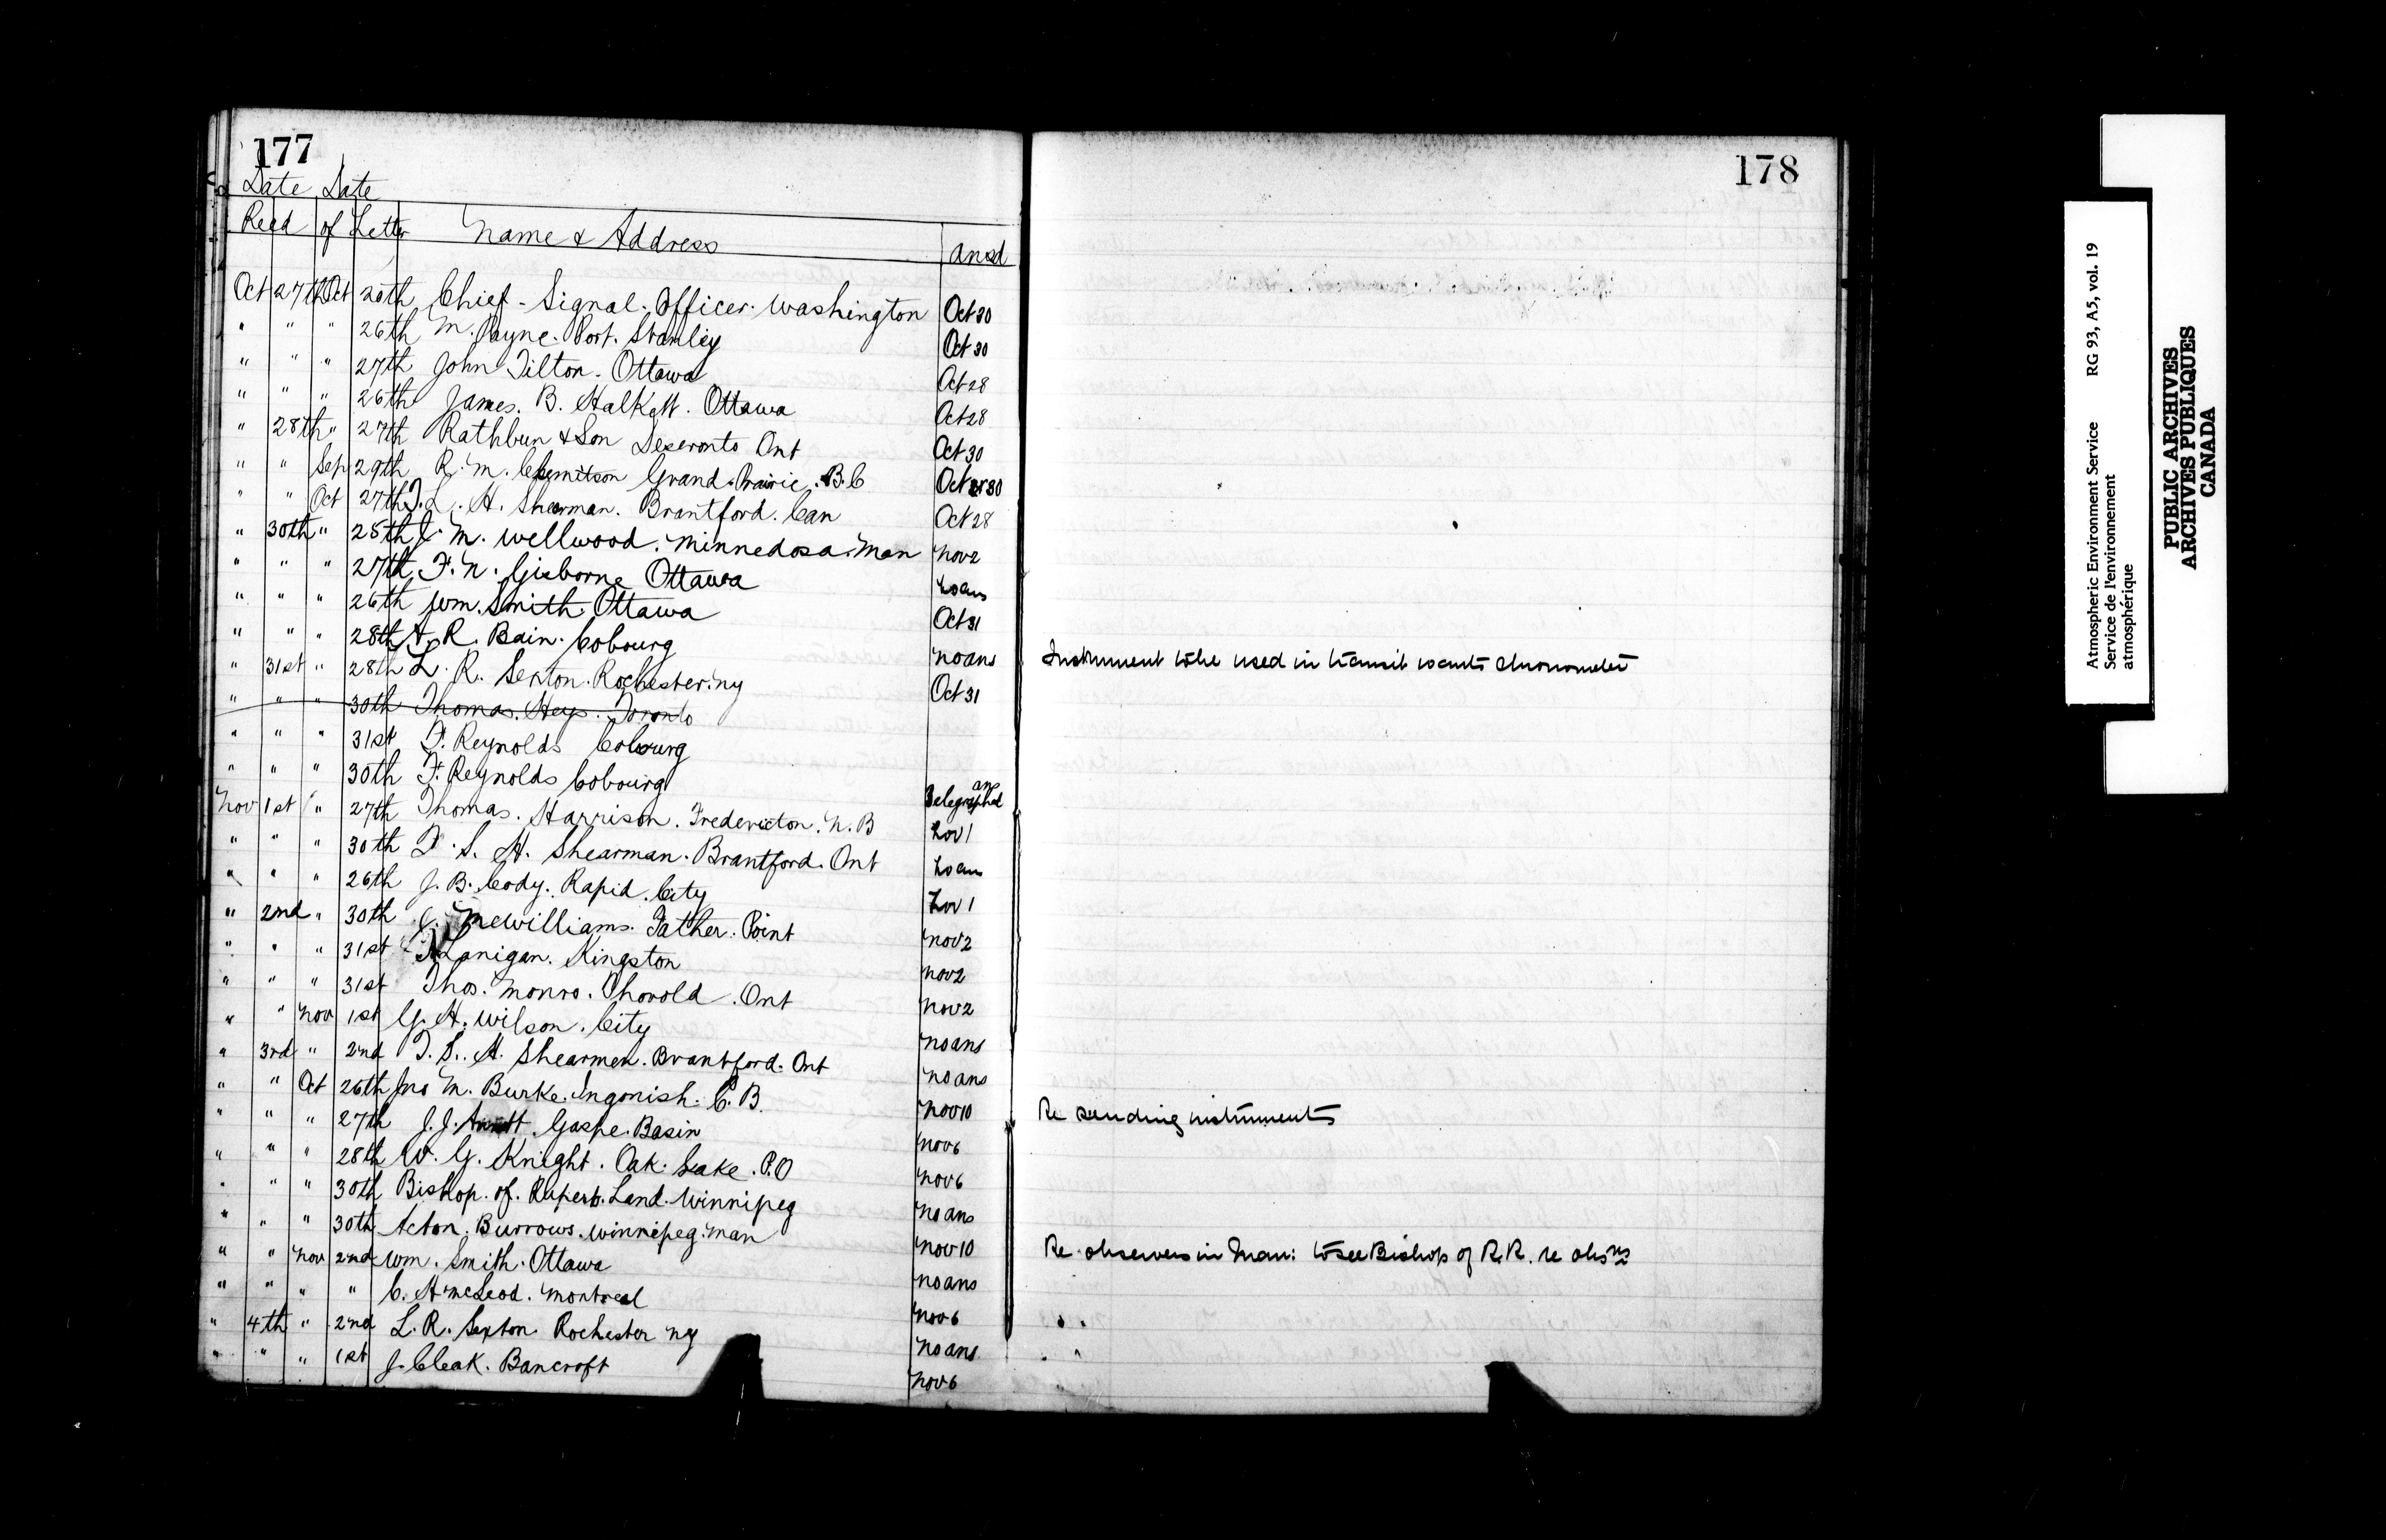 177
Date Date
Recd of Letter Name & Address ansd
Oct 27th Oct 20th Chief - Signal. Officer. Washington Oct 30
" " " 26th M. Payne. Port. Stanley Oct 30
" " " 27th John Tilton. Ottawa Oct 28
" " " 26th James. B. Halkett. Ottawa Oct 28
" 28th " 27th Rathbun & Son Deseronto Ont Oct 30
" " Sep 29th R. M. Grand. Prairie. B.C Oct 30
" " Oct 27th H. Shearman. Brantford. Can Oct 28
" 30th " 28th J. M. Wellwood. Minnedosa. Man Nov 2
" " " 27th F. N. Gisborne Ottawa No ans
" " " 26th Wm. Smith. Ottawa Oct 31
" " " 28th A. R. Bain. Cobourg No ans
" 31st " 28th L. R. Sexton. Rochester. NY Oct 31
" " " 30th Thomas. Heys. Toronto
" " " 31st F. Reynolds Cobourg
" " " 30th F. Reynolds Cobourg ans Telegraphed
Nov 1st " 27th Thomas. Harrison. Fredericton. N. B Nov 1
" " " 30th T. S. H. Shearman. Brantford. Ont No ans
" " " 26th J. B. Cody. Rapid. City Nov 1
" 2nd " 30th J. McWilliams. Father. Point Nov 2
" " " 31st Lanigan. Kingston Nov 2
" " " 31st Thos. Monro. Thorold. Ont Nov 2
" " Nov 1st G. H. Wilson. City No ans
" 3rd " 2nd T. S. H. Shearmen. Brantford. Ont No ans
" " Oct 26th Jno M. Burke. Ingonish. C. B. Nov 10
" " " 27th J. J. Gaspe. Basin Nov 6
" " " 28th W. G. Knight. Oak. Lake. P.O Nov 6
" " " 30th Bishop. of. Ruperts. Land. Winnipeg No ans
" " " 30th Acton. Burrows. Winnipeg. Man Nov 10
" " Nov 2nd Wm. Smith. Ottawa No ans
" " " " C. H McLeod. Montreal Nov 6
" 4th " 2nd L. R. Sexton. Rochester NY No ans
" " " 1st J. Cleak. Bancroft Nov 6
178
Instrument to be used in transit wants chronometer
Re sending instruments
Re observers in Man: to see Bishop of R.R. re obsns
Atmospheric Environment Service RG 93, A5, vol. 19
Service de l'environnement
atmosphérique
PUBLIC ARCHIVES
ARCHIVES PUBLIQUES
CANADA